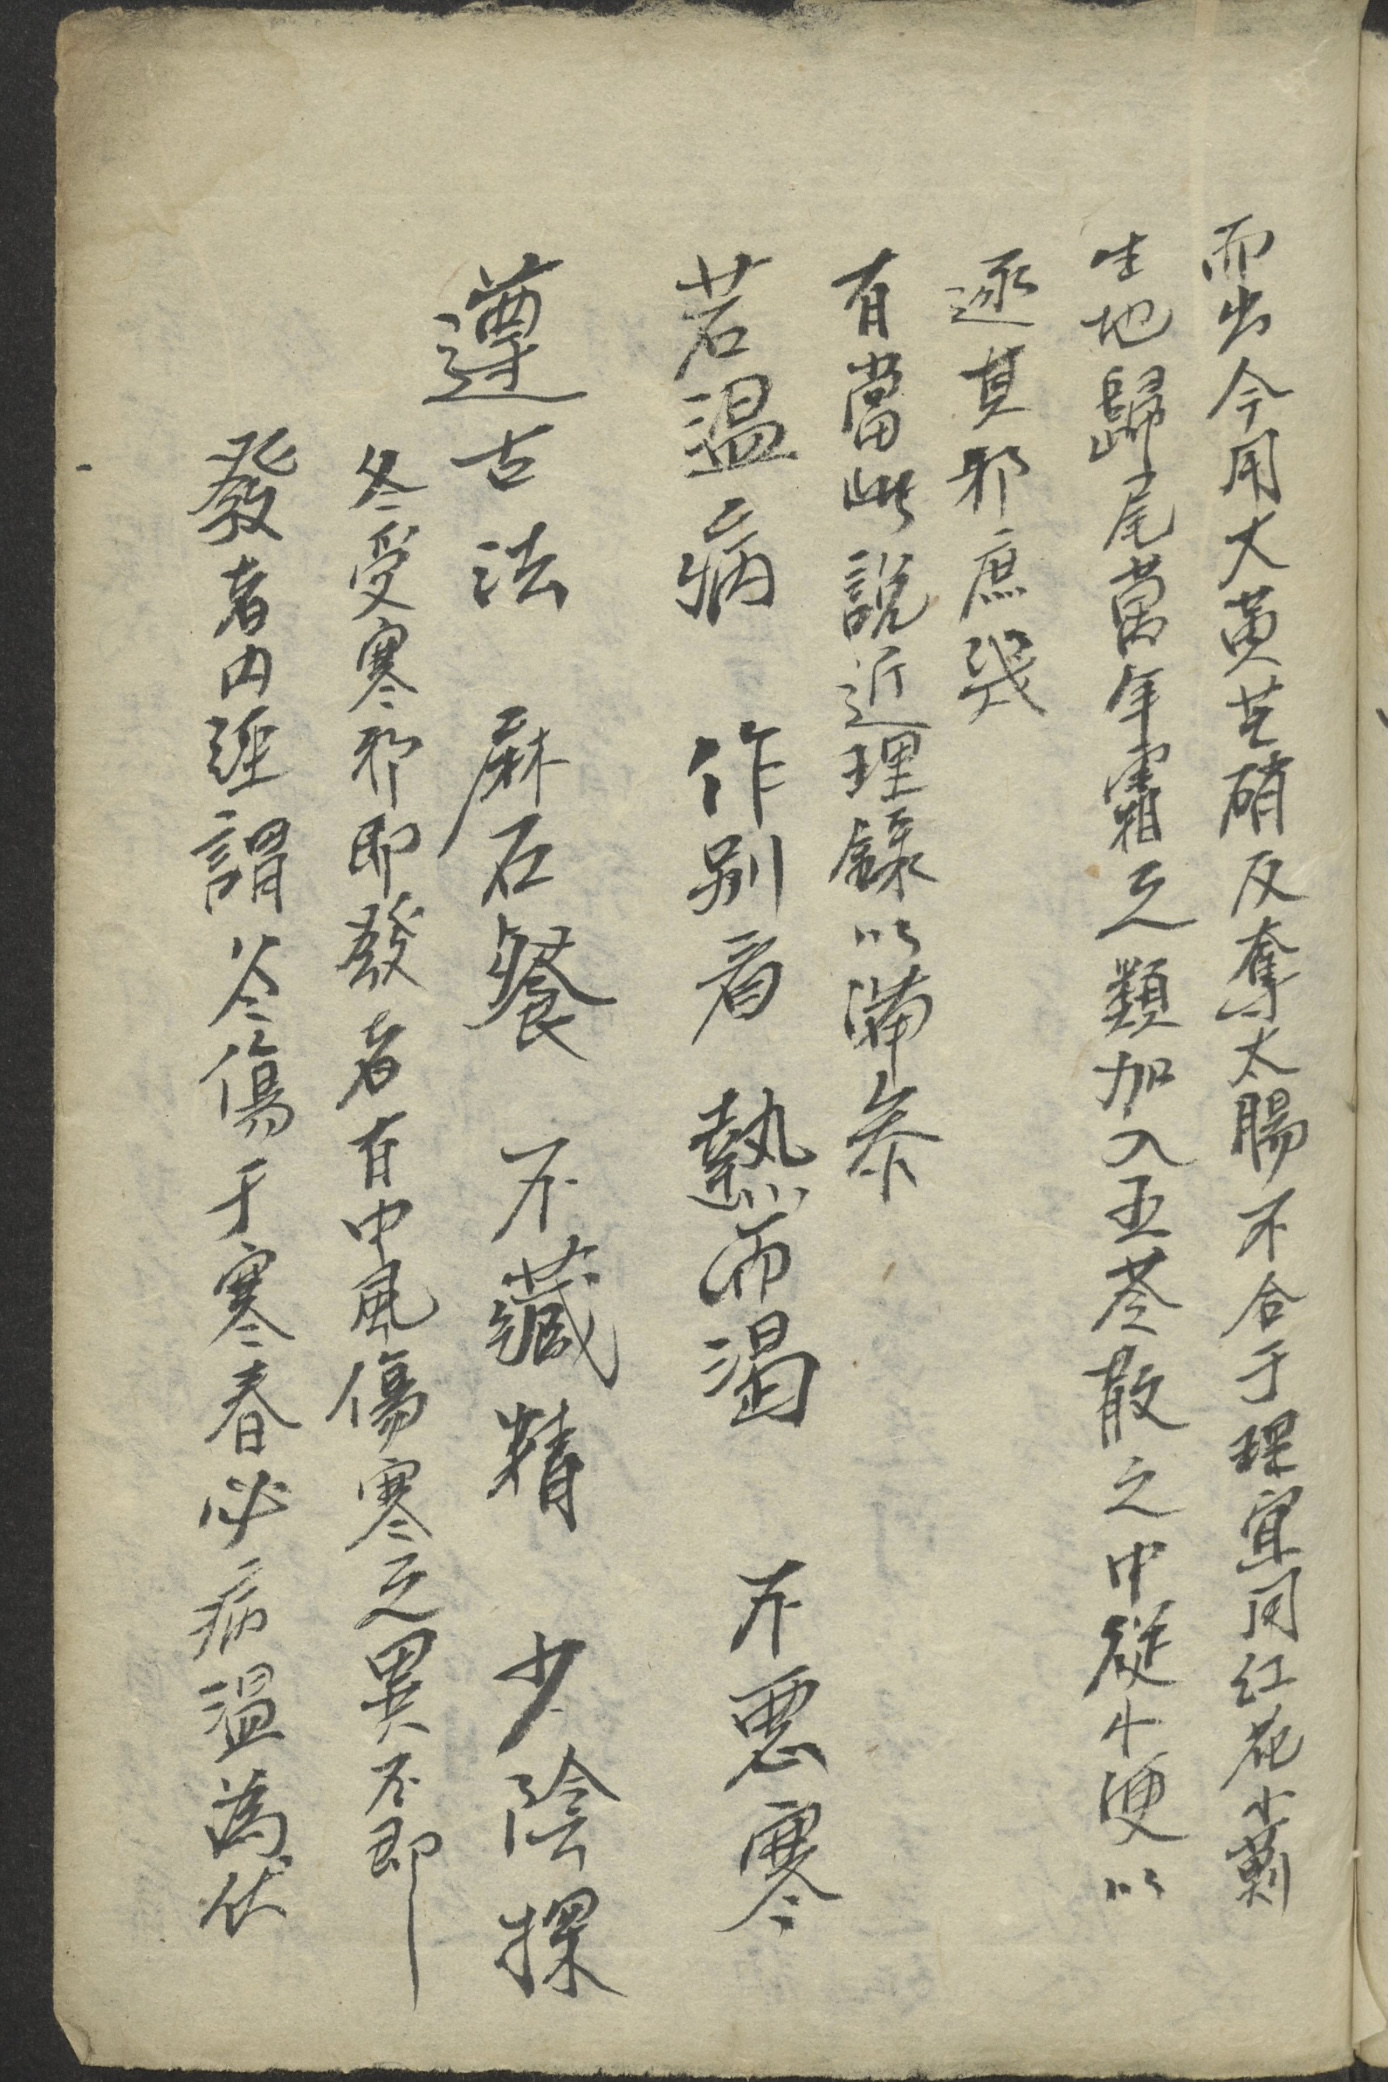 而出今用大黃芒硝反奪太腸不合于理宜用紅花小薊
生地歸尾萬年霜之類加入五苓散之中從小便以
逐其邪庶幾
有當此說近理錄以備參
若温病　作别看　熱而渴　不惡寒
遵古法　麻石餐　不藏精　少陰探
冬受寒邪即發者有中風傷寒之異不即
發者内經謂冬傷于寒春必病温為伏